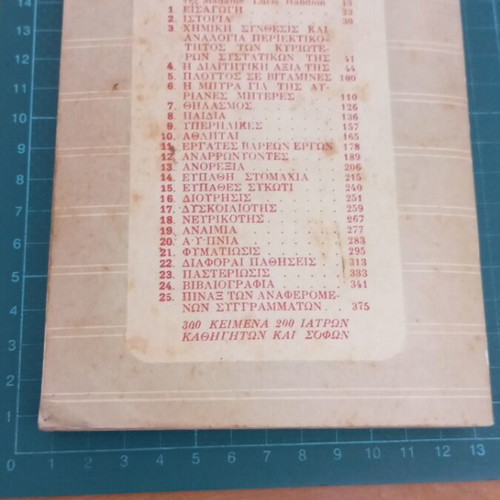 της Madame Lucie Randoin 13
1. ΕΙΣΑΓΩΓΗ . . . . . . . 23
2. ΙΣΤΟΡΙΑ . . . . . . . 30
3. ΧΗΜΙΚΗ ΣΥΝΘΕΣΙΣ ΚΑΙ
ΑΝΑΛΟΓΙΑ ΠΕΡΙΕΚΤΙΚΟ-
ΤΗΤΟΣ ΤΩΝ ΚΥΡΙΩΤΕ-
ΡΩΝ ΣΥΣΤΑΤΙΚΩΝ ΤΗΣ 41
4. Η ΔΙΑΙΤΗΤΙΚΗ ΑΞΙΑ ΤΗΣ 44
5. ΠΛΟΥΤΟΣ ΣΕ ΒΙΤΑΜΙΝΕΣ 100
6. Η ΜΠΥΡΑ ΓΙΑ ΤΗΣ ΑΥ-
ΡΙΑΝΕΣ ΜΗΤΕΡΕΣ . . . 110
7. ΘΗΛΑΣΜΟΣ . . . . . . 126
8. ΠΑΙΔΙΑ . . . . . . . 136
9. ΥΠΕΡΗΛΙΚΕΣ . . . . . 157
10. ΑΘΛΗΤΑΙ . . . . . . 165
11. ΕΡΓΑΤΕΣ ΒΑΡΕΩΝ ΕΡΓΩΝ 178
12. ΑΝΑΡΡΩΝΥΟΝΤΕΣ . . . 189
13. ΑΝΟΡΕΞΙΑ . . . . . . 206
14. ΕΥΠΑΘΗ ΣΤΟΜΑΧΙΑ . . 215
15. ΕΥΠΑΘΕΣ ΣΥΚΩΤΙ . . . 240
16. ΔΙΟΥΡΗΣΙΣ . . . . . . 251
17. ΔΥΣΚΟΙΛΙΟΤΗΣ . . . . 259
18. ΝΕΥΡΙΚΟΤΗΣ . . . . . 267
19. ΑΝΑΙΜΙΑ . . . . . . 277
20. Α·Υ·ΠΝΙΑ . . . . . . 283
21. ΦΥΜΑΤΙΩΣΙΣ . . . . . 295
22. ΔΙΑΦΟΡΑΙ ΠΑΘΗΣΕΙΣ . 313
23. ΠΑΣΤΕΡΙΩΣΙΣ . . . . 333
24. ΒΙΒΛΙΟΓΡΑΦΙΑ . . . . 341
25. ΠΙΝΑΞ ΤΩΝ ΑΝΑΦΕΡΟΜΕ-
ΝΩΝ ΣΥΓΓΡΑΜΜΑΤΩΝ . . 375
300 ΚΕΙΜΕΝΑ 200 ΙΑΤΡΩΝ
ΚΑΘΗΓΗΤΩΝ ΚΑΙ ΣΟΦΩΝ
14
13
12
11
10
9
8
7
6
5
4
3
2
1
0
0 1 2 3 4 5 6 7 8 9 10 11 12 13